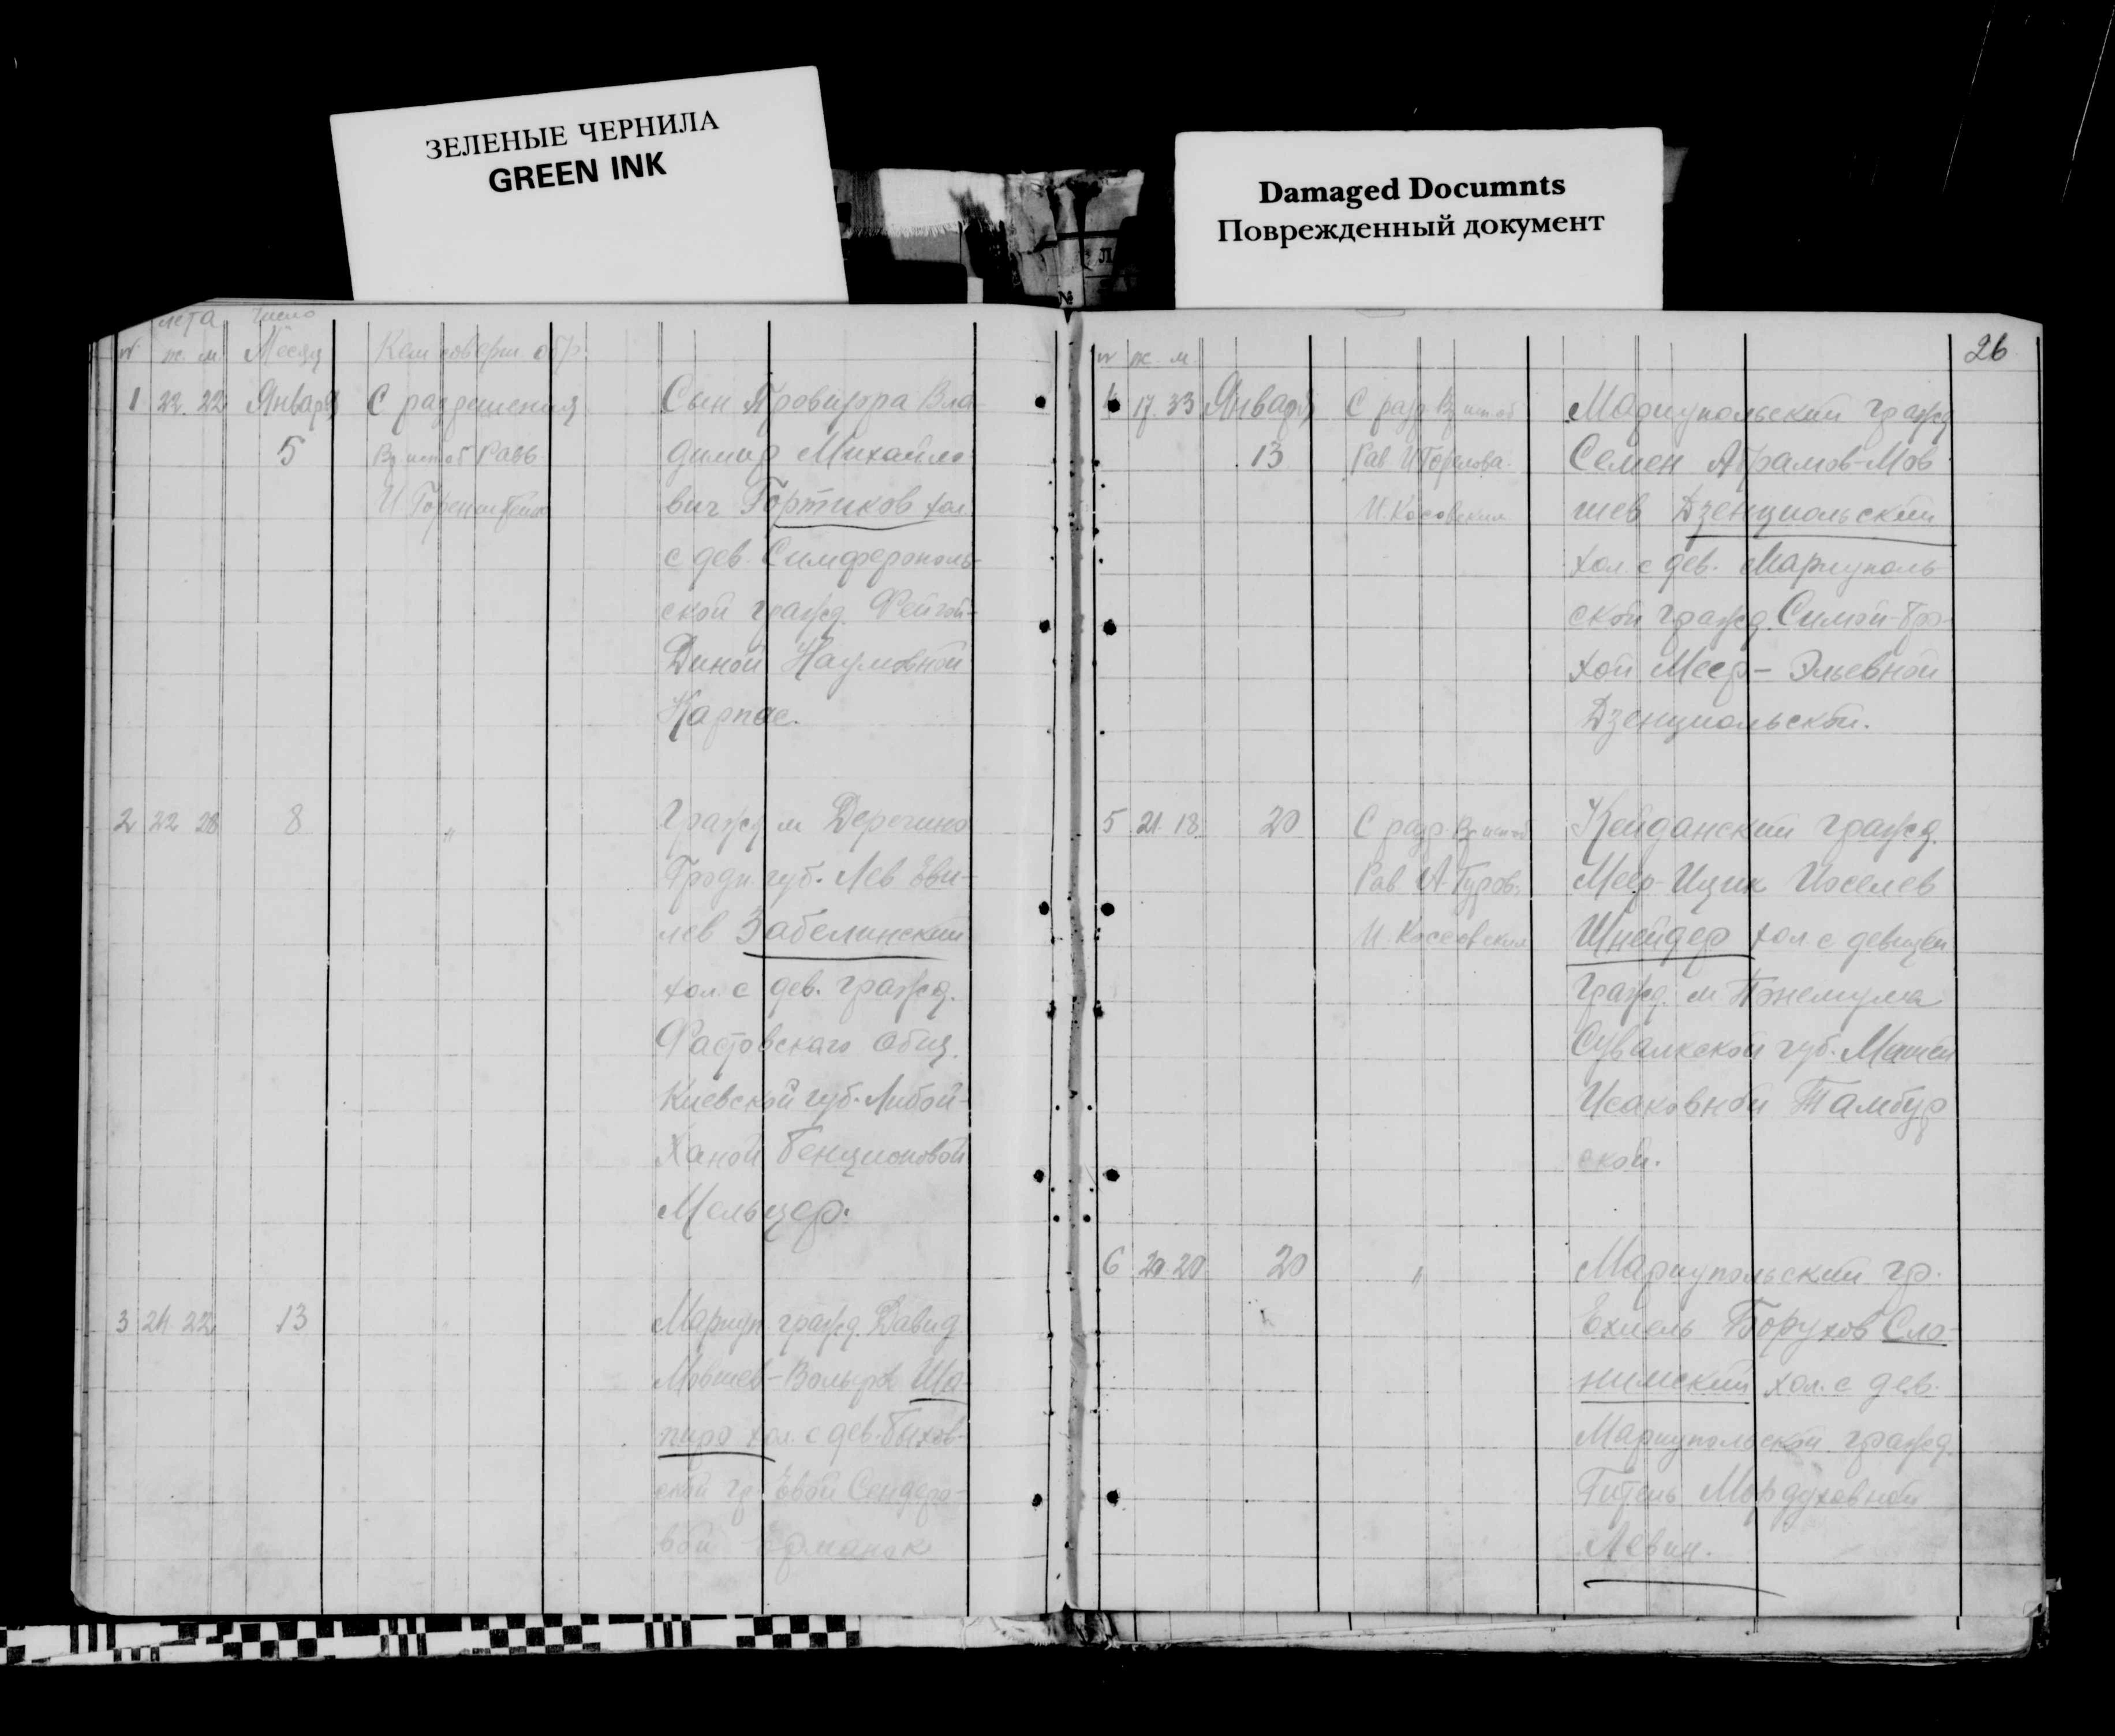 ЗЕЛЕНЫЕ ЧЕРНИЛА
GREEN INK
Damaged Documnts
Поврежденный документ
лета Число
№ ж. м. Месяц Кем соверш. обр.
1 22. 22 Января С разрешения Сын Провизора Вла-
5 Равв димир Михайло-
вич Гортиков хол.
с дев. Симферополь-
ской гражд. Фейгой-
Диной Наумовной
Карпас.
2 22 28 8 " Гражд м Деречино
Гродн. губ. Лев
лев Забелинский
хол. с дев. гражд.
Фастовского Общ.
Киевской губ. Либой-
Ханой Бенционовой
Мельцер.
3 24 22 13 Мариуп. гражд. Давид
Мовшев- Ша-
пиро хол. с дев. Быхов-
ской гр. Евой Сендеро-
вой
26
№ ж. м.
4 17. 33 Января С разр. Мариупольский гражд
13 Рав. Семен Абрамов-Мов
И. Косовский шев Дзенциольский
хол. с дев. Мариуполь-
ской гражд. Симой-Бро-
хой Меер-Эльевной
Дзенциольской.
5 21 18 20 С разр. Кейданский гражд.
Рав А. Гуров. Меер-Ицик Иоселев
И. Косовский Шнейдер хол. с девицей
гражд. м
Сувалкской губ.
Исаковной Тамбур
ской.
6 20. 20 20 " Мариупольский гр.
Ехиель Борухов Сло-
нимский хол. с дев.
Мариупольской гражд.
Мордуховной
Левин.